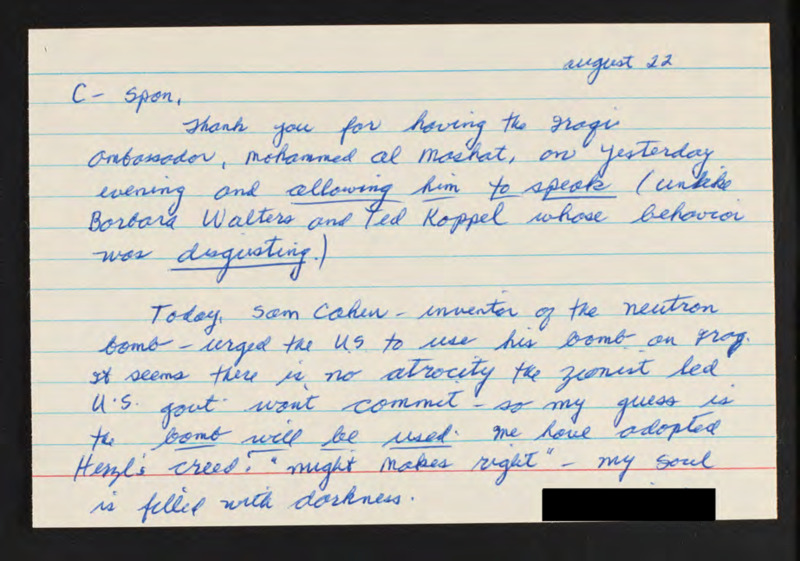 august 22
C- Span,
Thank you for having the Iraqi
ambassador, mohammed al mashat, on yesterday
evening and allowing him to speak (unlike
Barbara Walters and Ted Koppel whose behavior
was disgusting.)
Today, Sam Cohen - inventor of the neutron
bomb - urged the U.S. to use his bomb on Iraq.
It seems there is no atrocity the zionist led
U.S. govt wont commit - so my guess is
the bomb will be used. We have adopted
Herzl's creed: "might makes right" - my soul
is filled with darkness.